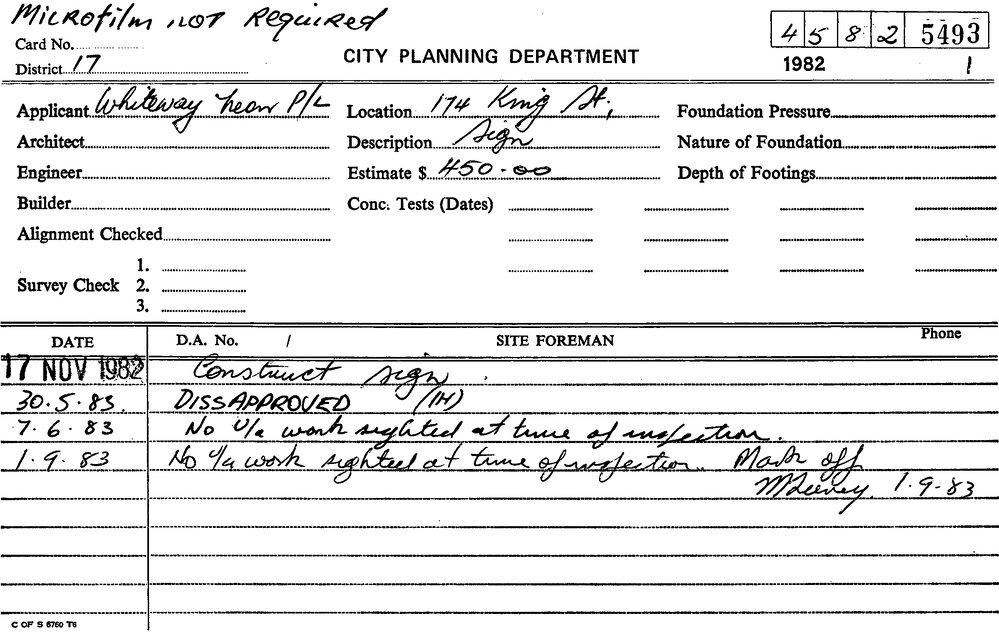 Microfilm not Required
Card No.
4 5 8 2 5493
District 17
CITY PLANNING DEPARTMENT
1982 1
Applicant Whiteway neon P/L Location 174 King St, Foundation Pressure
Architect Description Sign Nature of Foundation
Engineer Estimate $ 450.00 Depth of Footings
Builder Conc. Tests (Dates)
Alignment Checked
1.
Survey Check 2.
3.
DATE D.A. No. / SITE FOREMAN Phone
17 NOV 1982 Construct sign.
30.5.83. DISSAPPROVED (IH)
7.6.83 No U/a work sighted at time of inspection.
1.9.83 No U/a work sighted at time of inspection. Mark off
1.9.83
C OF S 6760 T6